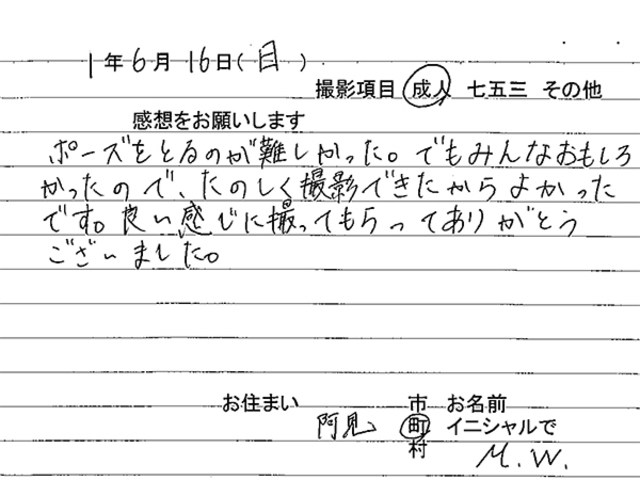 1年6月16日(日)
撮影項目 成人 七五三 その他
感想をお願いします
ポーズをとるのが難しかった。でもみんなおもしろ
かったので、たのしく撮影できたからよかった
です。良い感じに撮ってもらってありがとう
ございました。
お住まい 阿見 市町村 お名前 イニシャルで
M.W.